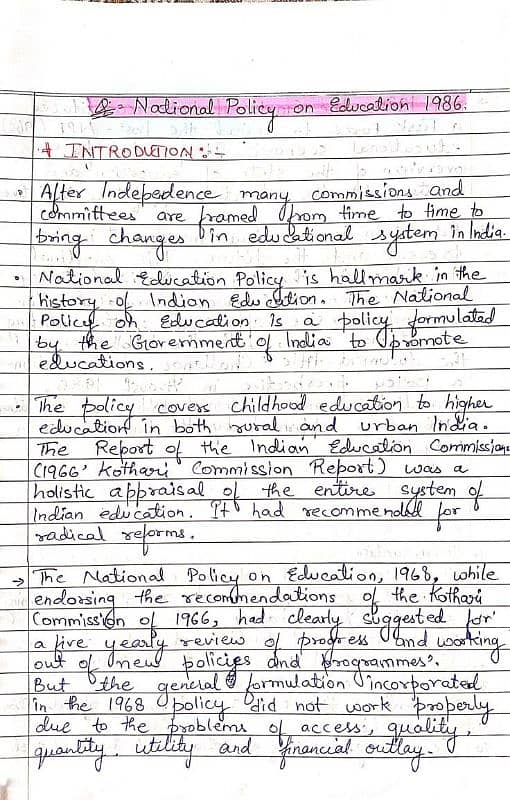 Q- National Policy on Education 1986.
* INTRODUTION :-
• After Indepedence many commissions and
committees are framed from time to time to
bring changes in educational system in India.
• National Education Policy is hallmark in the
history of Indian Education. The National
Policy on Education is a policy formulated
by the Government of India to promote
educations.
• The policy covers childhood education to higher
education in both rural and urban India.
The Report of the Indian Education Commission
(1966' Kothari Commission Report) was a
holistic appraisal of the entire system of
Indian education. It had recommended for
radical reforms.
→ The National Policy on Education, 1968, while
endorsing the recommendations of the Kothari
Commission of 1966, had clearly suggested for'
a five yearly review of progress and working
out of new policies and programmes'.
But the general formulation incorporated
in the 1968 policy did not work properly
due to the problems of access, quality,
quantity, utility and financial outlay.